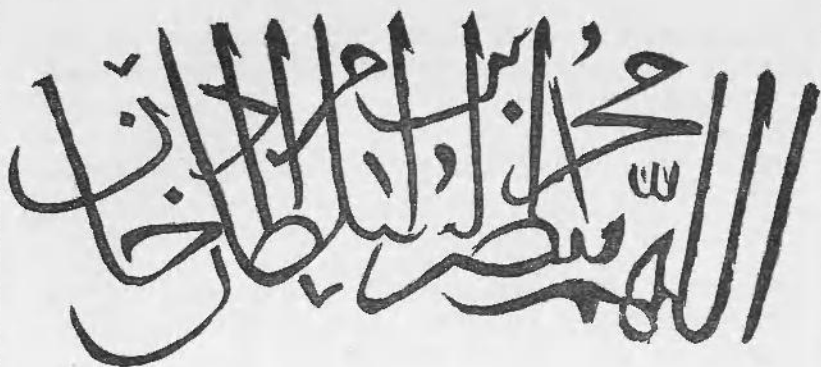 اللهم انصر السلطان محمد بن مراد خان